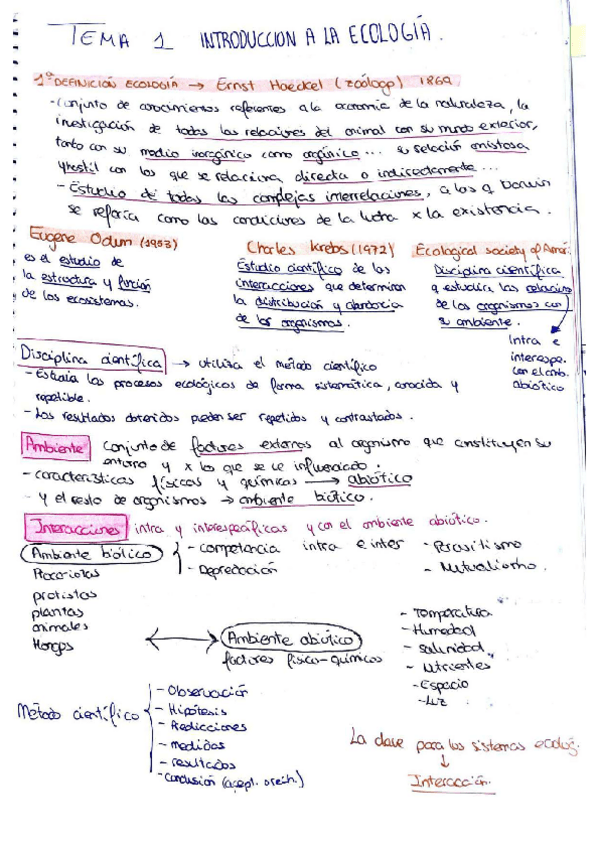 TEMA 1 INTRODUCCION A LA ECOLOGÍA.
1ª DEFINICIÓN ECOLOGÍA → Ernst Haeckel (zoólogo) 1869
- Conjunto de conocimientos referentes a la economía de la naturaleza, la
investigación de todas las relaciones del animal con su mundo exterior,
tanto con su medio inorgánico como orgánico... su relación amistosa
y hostil con los que se relaciona directa o indirectamente...
- Estudio de todas las complejas interrelaciones, a las q Darwin
se refería como las condiciones de la lucha x la existencia.
Eugene Odum (1953)
es el estudio de
la estructura y función
de los ecosistemas.
Charles Krebs (1972)
Estudio científico de las
interacciones que determinan
la distribución y abundancia
de los organismos.
Ecological society of Amer.
Disciplina científica
q estudia las relacions
de los organismos con
su ambiente.
Intra e
interespe.
con el amb.
abiótico
Disciplina científica → utiliza el método científico
- Estudia los procesos ecológicos de forma sistemática, conocida y
repetible.
- Los resultados obtenidos pueden ser repetidos y contrastados.
Ambiente conjunto de factores externos al organismo que constituyen su
entorno y x lo que se ve influenciado.
- características físicas y químicas → abiótico
- y el resto de organismos → ambiente biótico.
Interacciones intra y interespecíficas y con el ambiente abiótico.
Ambiente biótico
Procariotas
protistas
plantas
animales
Hongos
- competencia intra e inter
- Depredación
- Parasitismo
- Mutualismo.
Ambiente abiótico
factores físico-químicos
- Temperatura
- Humedad
- salinidad
- Nutrientes
- Espacio
- Luz
Método científico
- Observación
- Hipótesis
- Predicciones
- medidas
- resultados
- Conclusión (acept. o rech.)
La clave para los sistemas ecológ.
↓
Interacción.